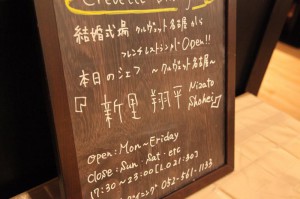 結婚式場 クルヴェット名古屋 から
フレンチレストランバーOpen!!
本日のシェフ ～クルヴェット名古屋～
『新里 翔平 Nizato Shohei』
Open: Mon~Friday
Close: Sun・Sat・etc
17:30~23:00[L.O 21:30]
052-561-1133